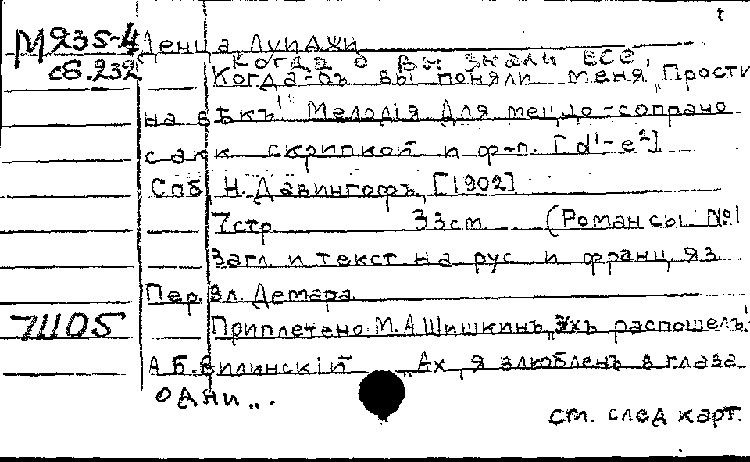 М 235-4 Ленца Луиджи
сб. 232 Когда б вы знали все,
Когда-бъ вы поняли меня „Прости
на вѣкъ" Мелодія для меццо-сопрано
с акк скрипкой и ф-п. [d¹-e²]
Спб, Н. Давингофъ, [1902]
7стр 33cm (Романсы №1
Загл. и текст на рус и франц. яз
Пер. Вл. Детара
71105 Приплетено: М.А. Шишкинъ „Эхъ распошелъ"
А.Б. Вилинскій „Ах, я влюбленъ в глаза
одни„.
ст. след карт.